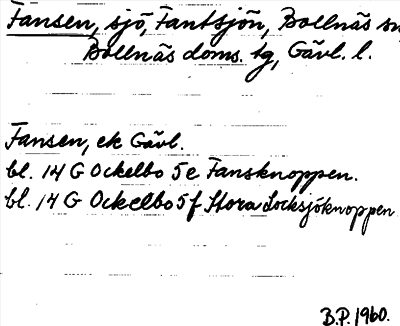 Fansen, sjö, Fantsjön, Bollnäs sn,
Bollnäs doms. tg, Gävl. l.
Fansen, ek Gävl.
bl. 14 G Ockelbo 5e Fansknoppen.
bl. 14 G Ockelbo 5f Stora Locksjöknoppen
B.P. 1960.